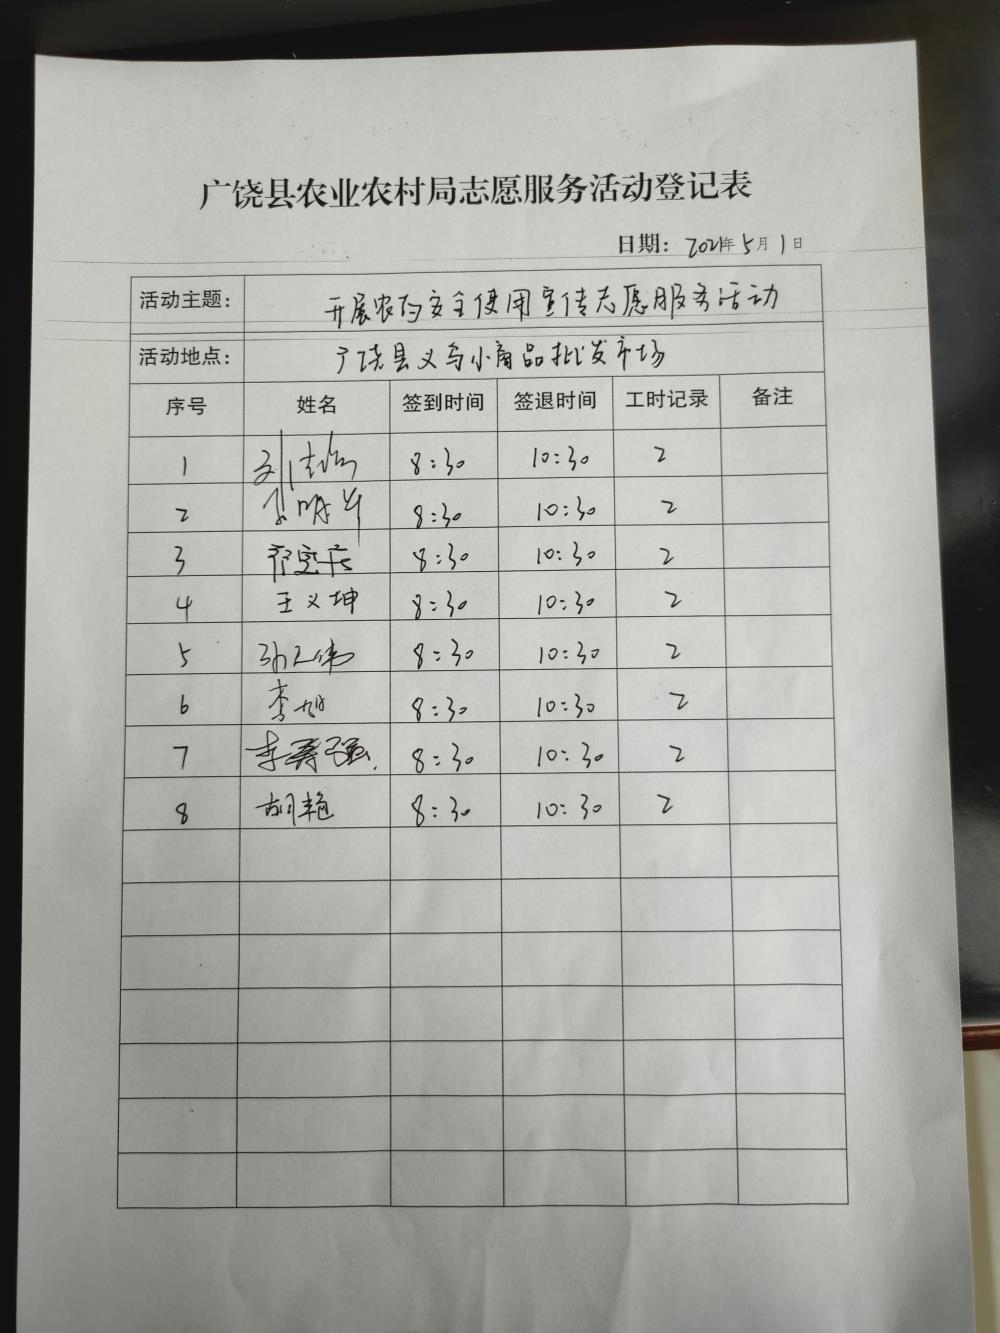 广饶县农业农村局志愿服务活动登记表
日期: 2021年5月1日
活动主题: 开展农药安全使用宣传志愿服务活动
活动地点: 广饶县义乌小商品批发市场
序号 姓名 签到时间 签退时间 工时记录 备注
1 8:30 10:30 2
2 8:30 10:30 2
3 8:30 10:30 2
4 王义坤 8:30 10:30 2
5 8:30 10:30 2
6 李旭 8:30 10:30 2
7 李寿强 8:30 10:30 2
8 胡艳 8:30 10:30 2